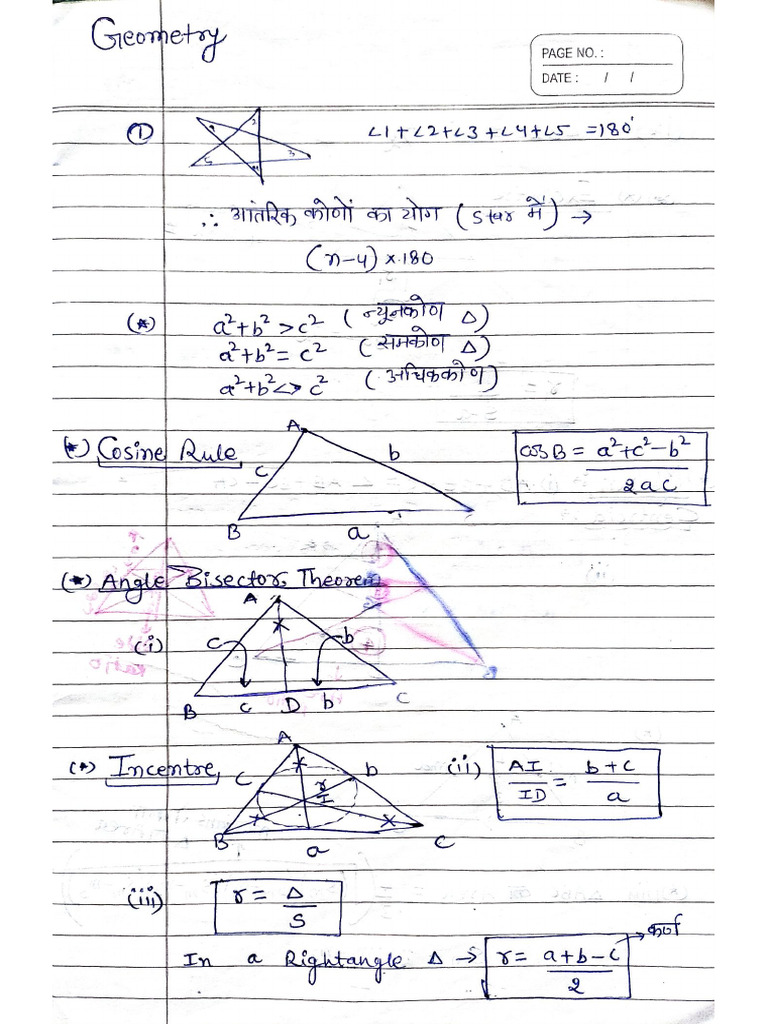 Geometry
PAGE NO. :
DATE : / /
① 1 2 3 4 5 ∠1+∠2+∠3+∠4+∠5 =180°
∴ आंतरिक कोणों का योग (Star में) →
(n-4)×180
(*) a²+b² > c² (न्यूनकोण Δ)
a²+b² = c² (समकोण Δ)
a²+b² < c² (अधिककोण)
(*) Cosine Rule
A
c b
B a
cos B = a²+c²-b² / 2ac
(*) Angle Bisector Theorem
A
(i) c b
B c D b C
(*) Incentre
A
c b
r
I
B a C
(ii) AI/ID = b+c/a
(iii) r = Δ/S
कर्ण
In a Rightangle Δ → r = a+b-c / 2